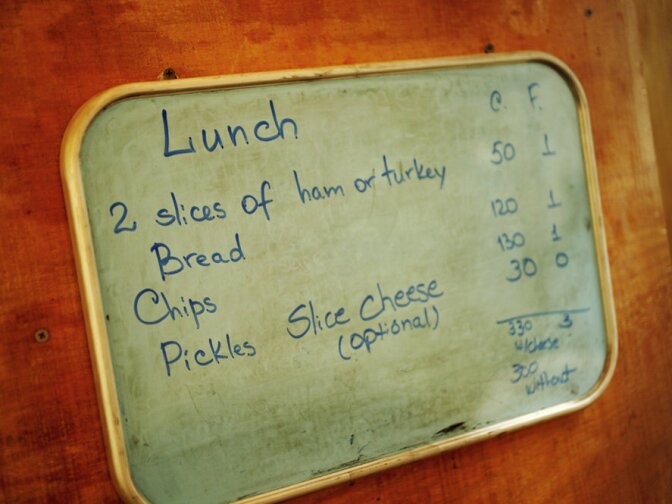 Lunch C. F.
2 slices of ham or turkey 50 1
Bread 120 1
Chips 130 1
Pickles Slice cheese 30 0
(optional)
330 3
w/cheese
300
without